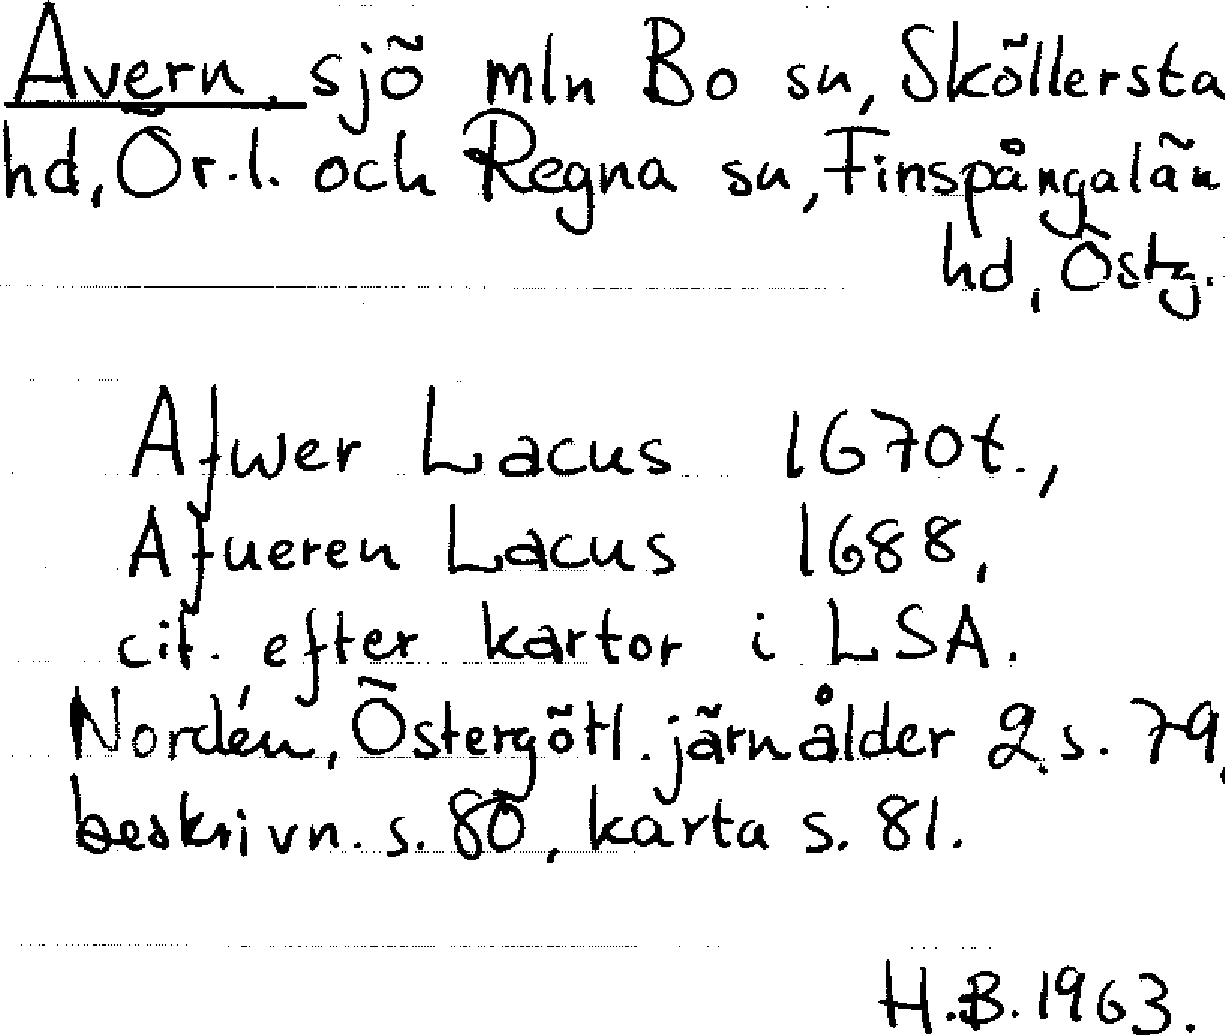 Avern, sjö mln Bo sn, Sköllersta
hd, Ör.l. och Regna sn, Finspångalän
hd, Östg.
Afwer Lacus 1670t.,
Afueren Lacus 1688,
cit. efter kartor i LSA.
Nordén, Östergötl. järnålder 2 s. 79,
beskrivn. s. 80, karta s. 81.
H.B. 1963.